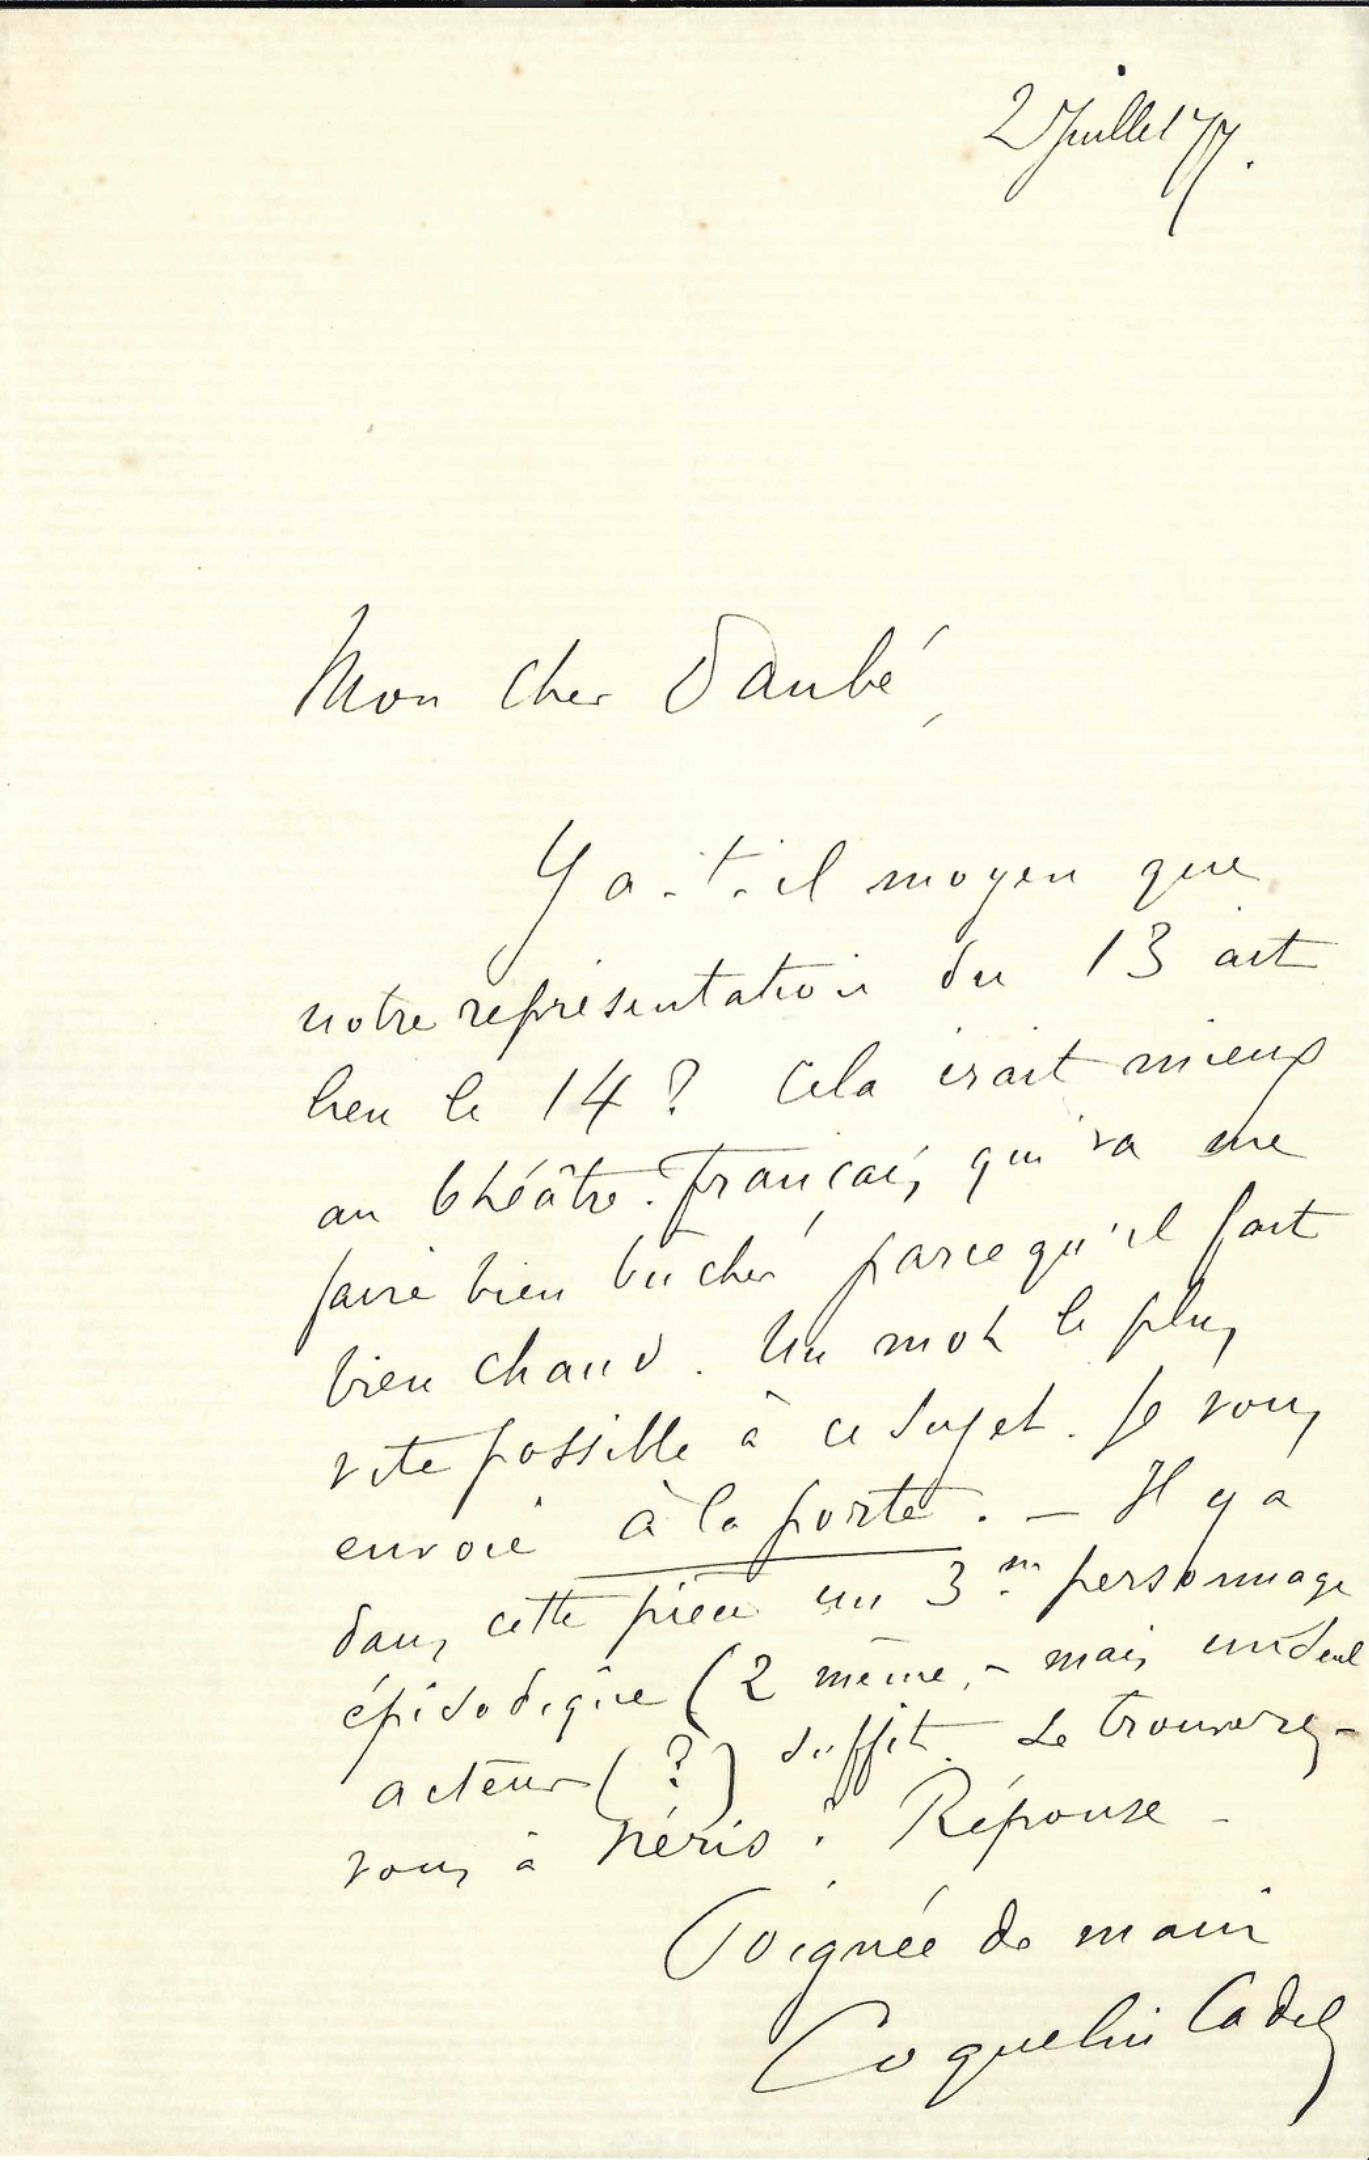 2 Juillet 77.
Mon cher Danbé,
Y a-t-il moyen que
notre représentation du 13 ait
lieu le 14 ? Cela irait mieux
au théâtre-français, qui va me
faire bien bûcher parcequ'il fait
bien chaud. Un mot le plus
vite possible à ce sujet. Je vous
envoie à la porte. — Il y a
dans cette pièce un 3me personnage
épisodique (2 même, - mais un seul
acteur (?) suffit. Le trouverez-
vous à Néris ? Réponse -
Poignée de main
Coquelin Cadet